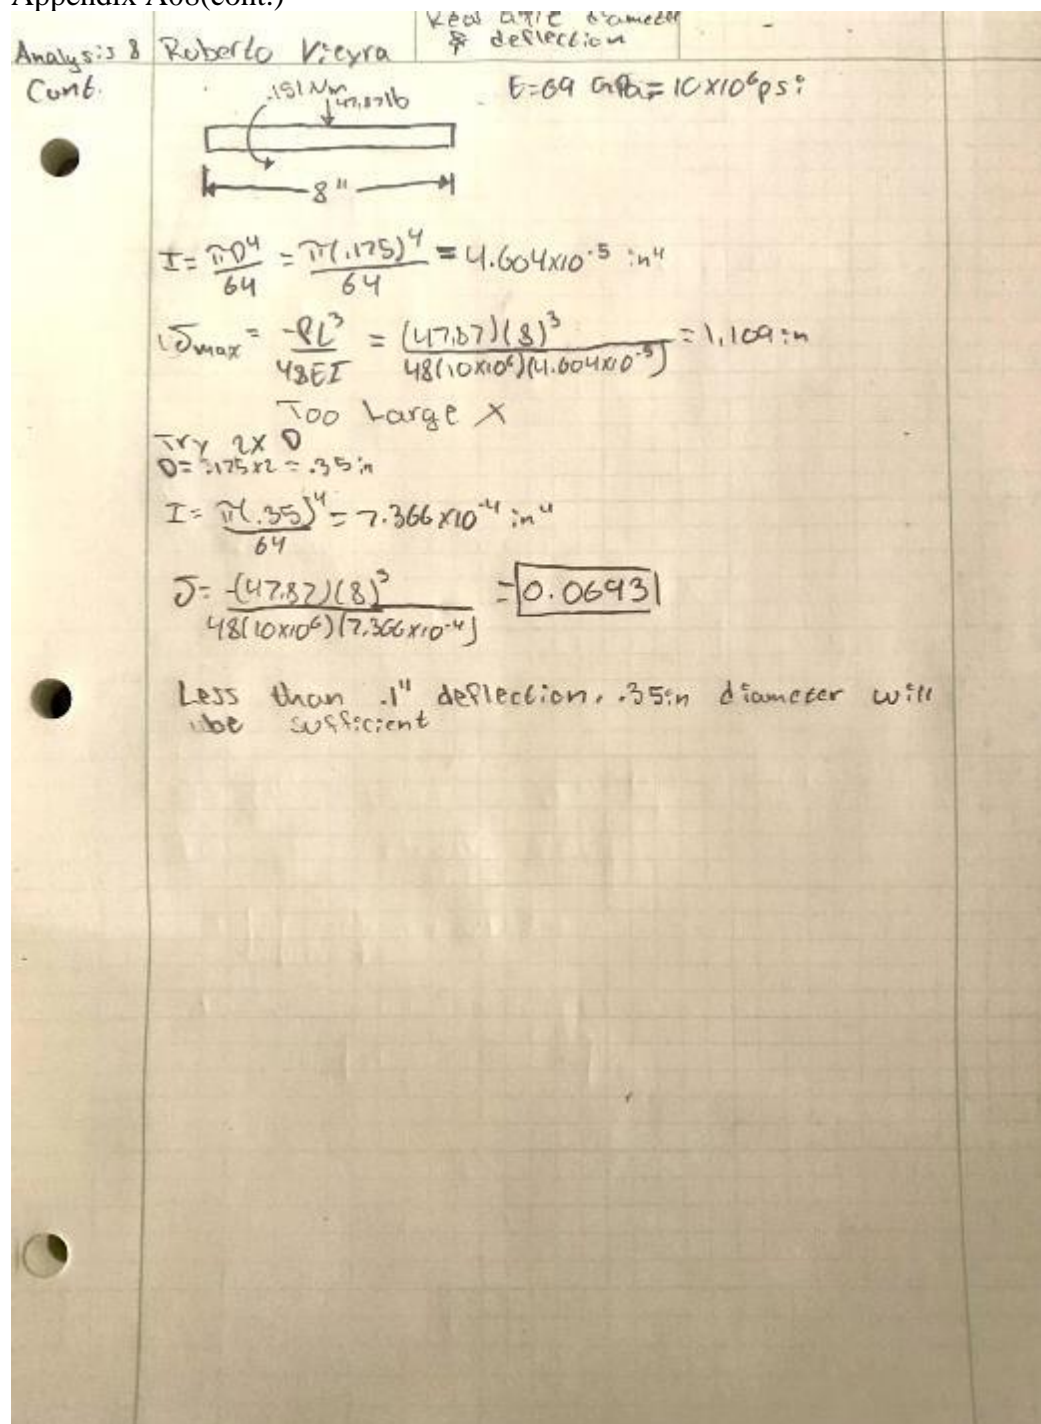 Appendix A08(cont.)
Rear axle diameter
Analysis 8 Roberto Vieyra & deflection
Cont.
.151 Nm
47.87lb
E=69 GPa= 10x10⁶psi
8"
I= πD⁴/64 = π(.175)⁴/64 = 4.604x10⁻⁵ in⁴
δmax = -PL³/48EI = (47.87)(8)³/48(10x10⁶)(4.604x10⁻⁵) = 1.109in
Too Large X
Try 2x D
D= .175x2 = .35in
I= π(.35)⁴/64 = 7.366x10⁻⁴ in⁴
δ= -(47.87)(8)³/48(10x10⁶)(7.366x10⁻⁴) = 0.0693
Less than .1" deflection. .35in diameter will
be sufficient